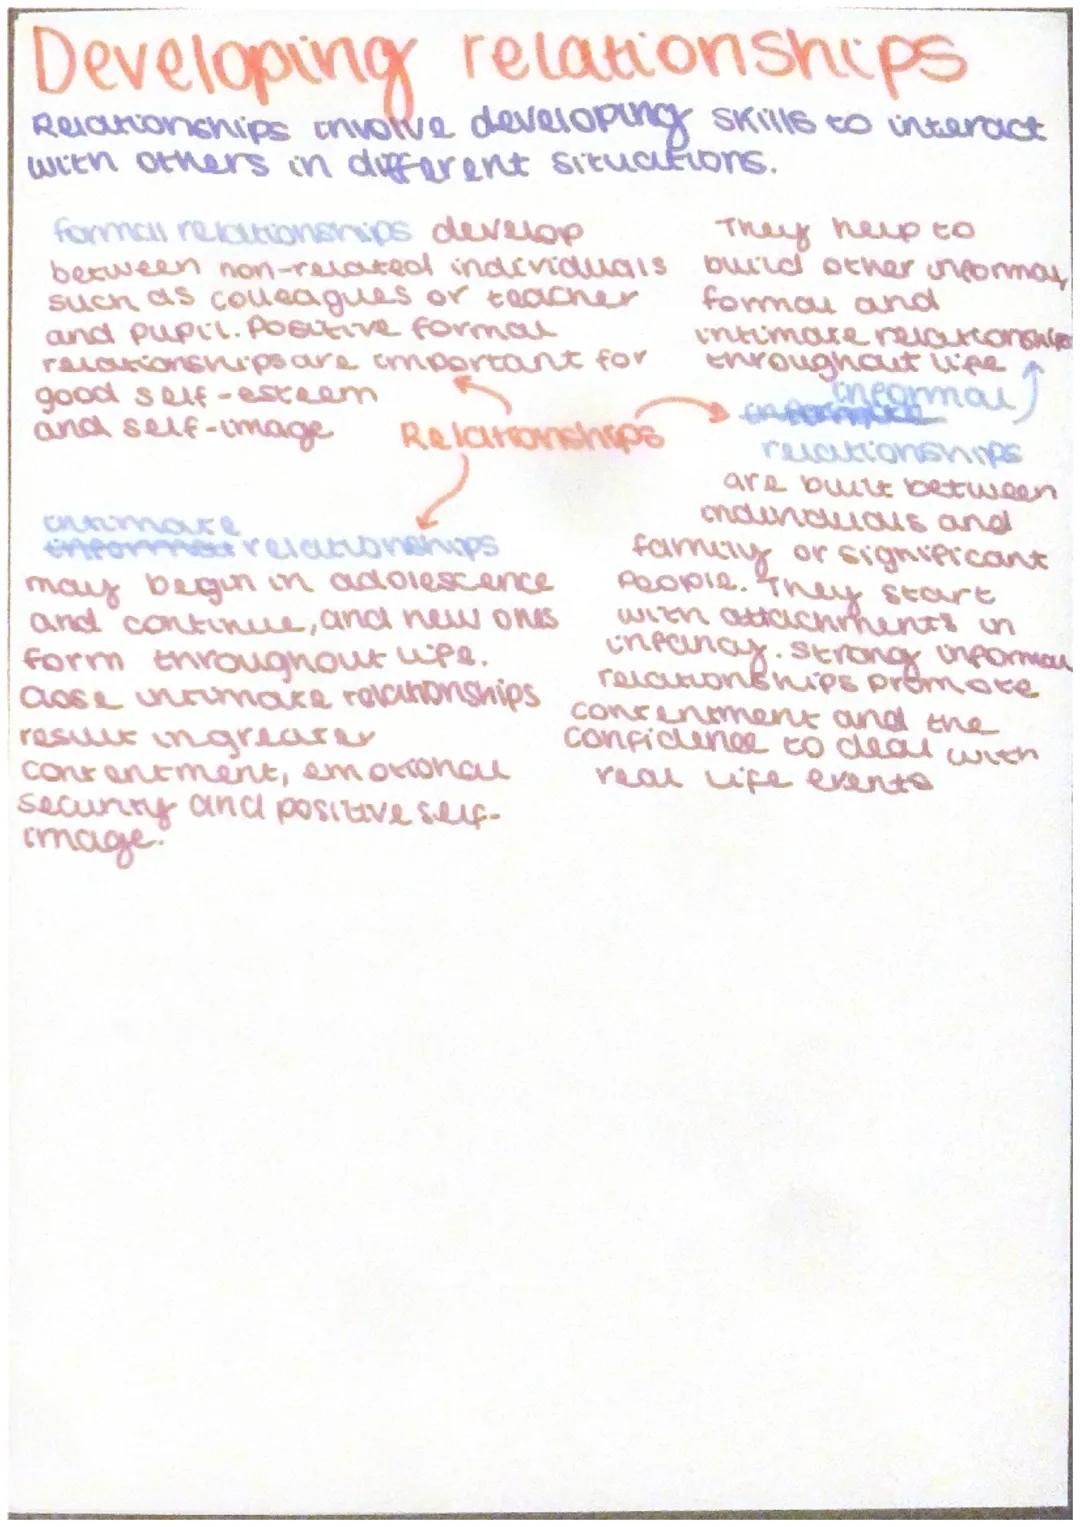 Developing relationships
Relationships involve developing skills to interact
with others in different situations.
formal relationships develop
between non-related individuals
such as colleagues or teacher
and pupil. Positive formal
relationships are important for
good self-esteem
and self-image
They help to
build other informal,
formal and
intimate relationships
throughout life
Relationships
informal
relationships
are built between
individuals and
family or significant
people. They start
with attachments in
infancy. Strong informal
relationships promote
contentment and the
confidence to deal with
real life events
intimate
relationships
may begin in adolescence
and continue, and new ones
form throughout life.
Close intimate relationships
result in greater
contentment, emotional
security and positive self-
image.